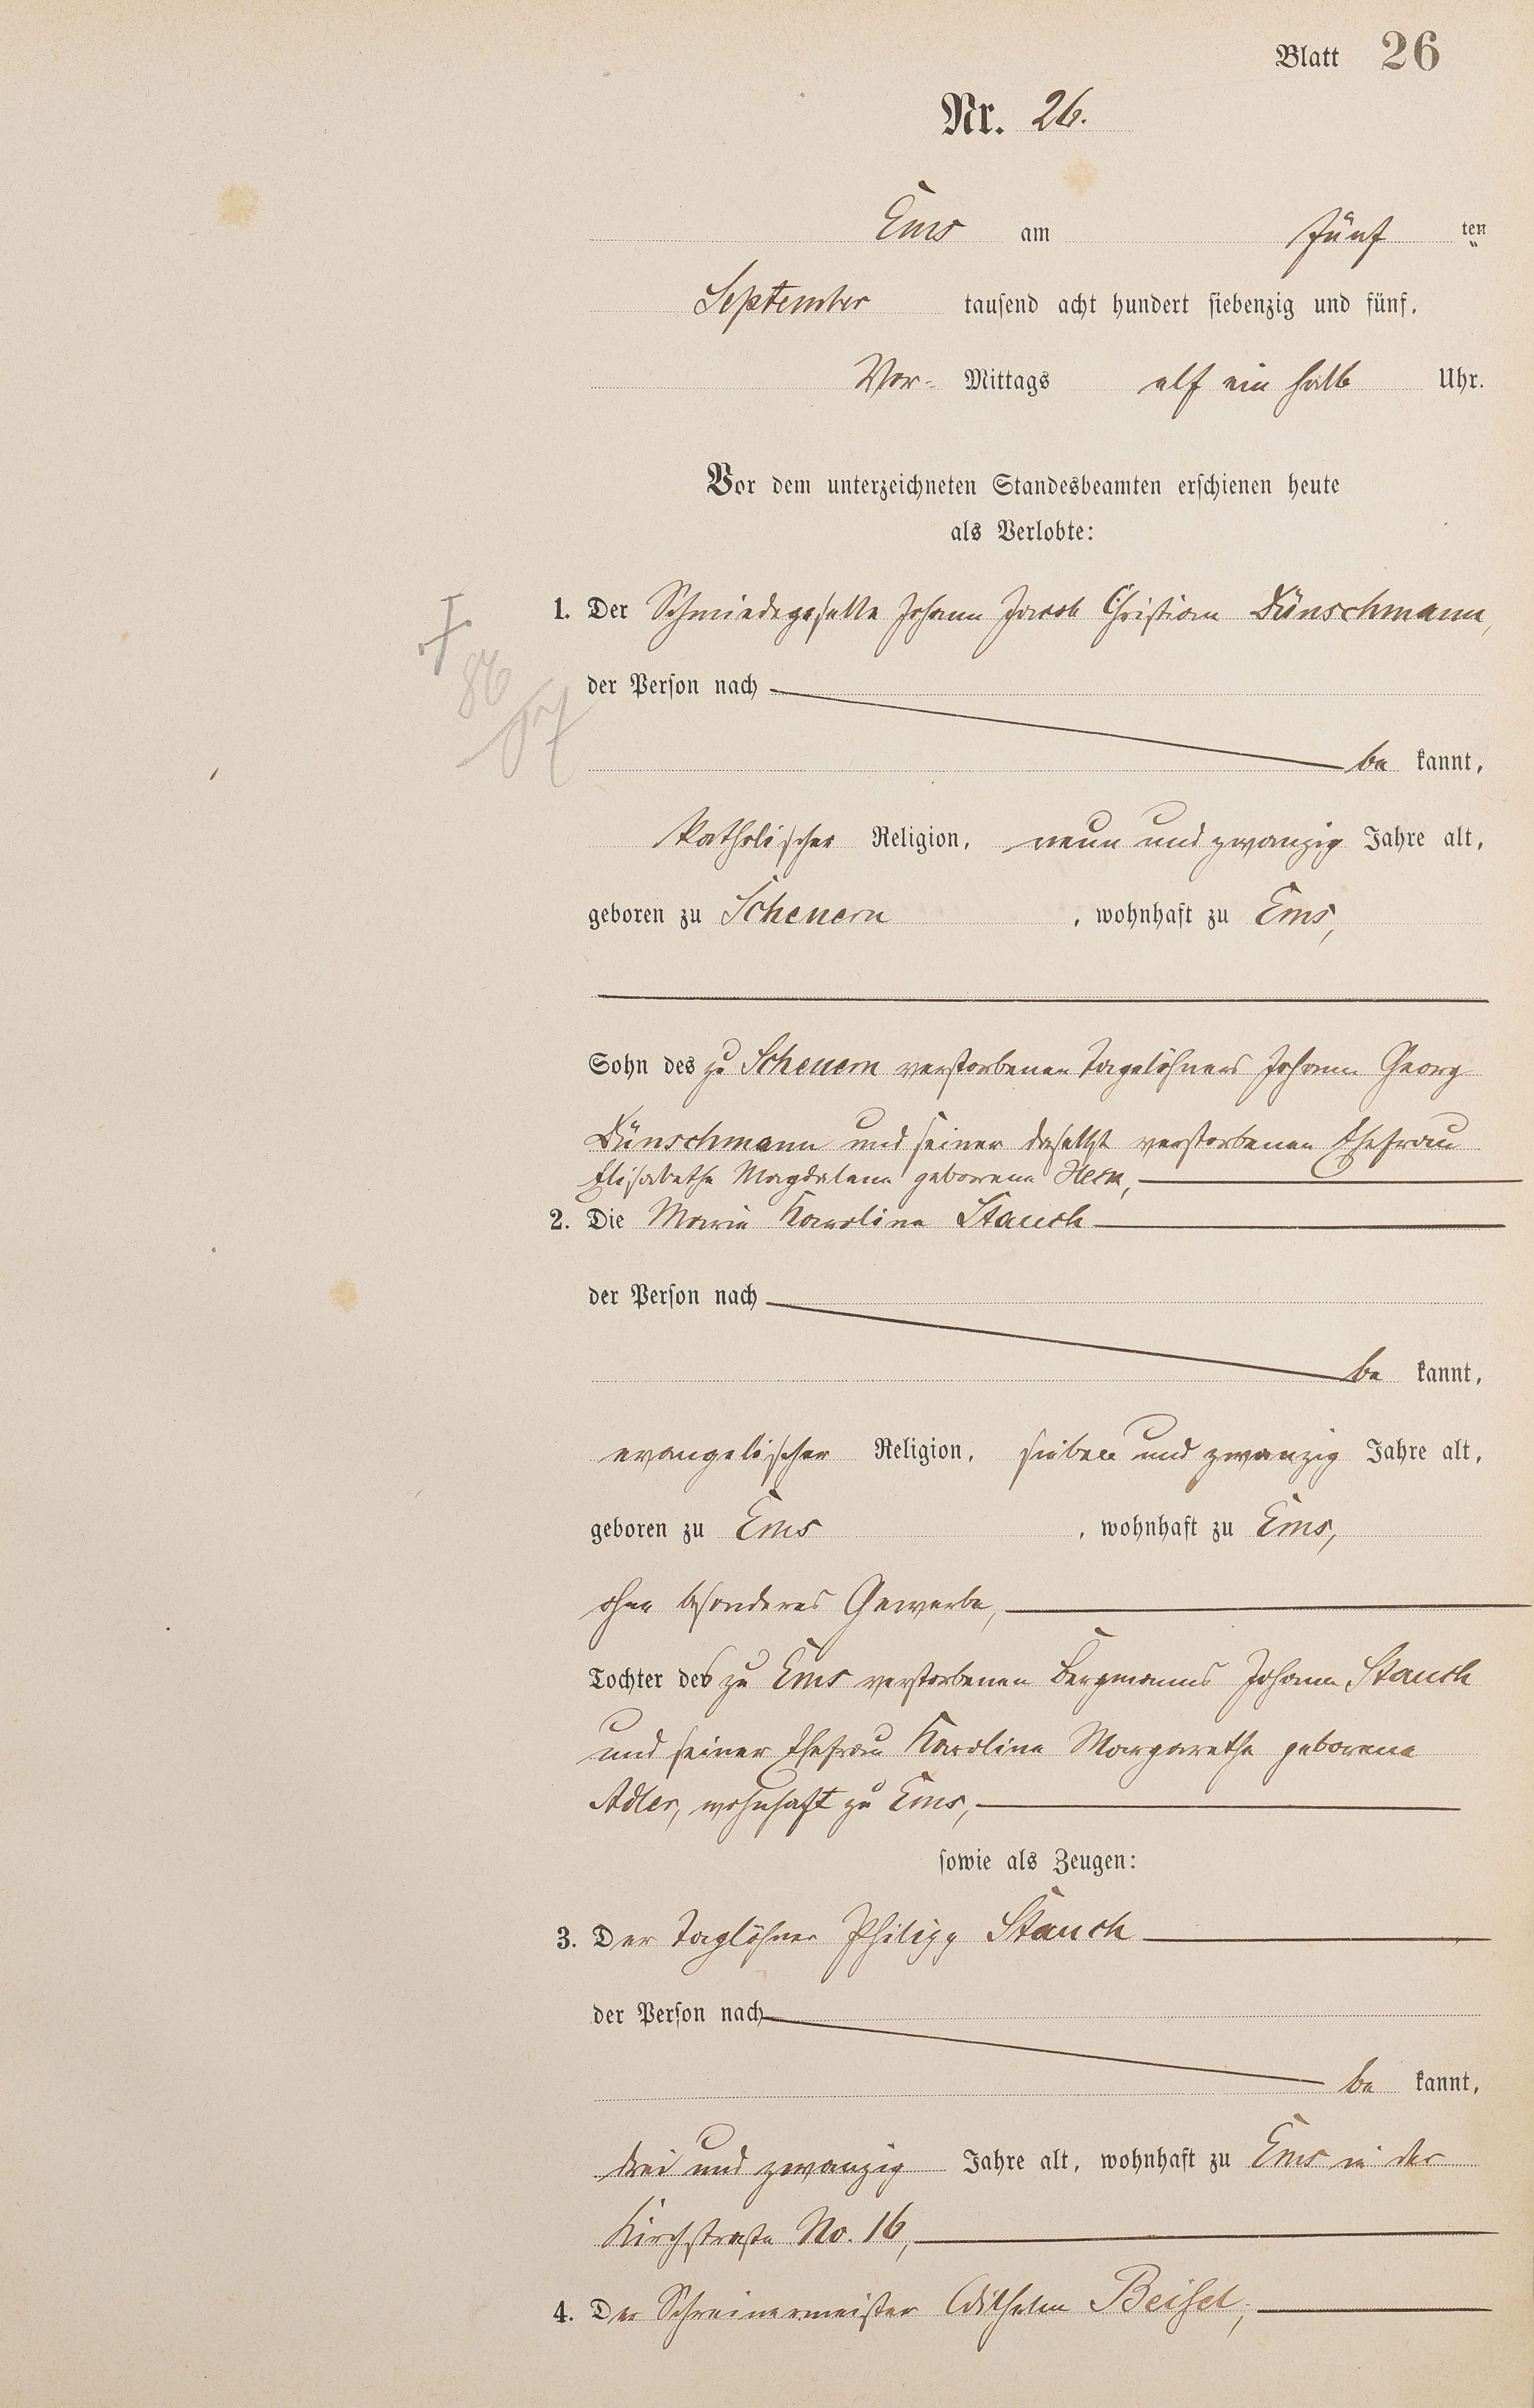 Blatt 26
Nr. 26.
Ems am fünf ten
September tausend acht hundert siebenzig und fünf.
Vor- Mittags elf ein halb Uhr.
Vor dem unterzeichneten Standesbeamten erschienen heute
als Verlobte:
1. Der Schmiedegeselle Johann Jacob Christian Dünschmann,
der Person nach
be kannt,
katholischer Religion, neun und zwanzig Jahre alt,
geboren zu Scheuern, wohnhaft zu Ems,
Sohn des zu Scheuern verstorbenen Tagelöhners Johann Georg
Dünschmann und seiner daselbst verstorbenen Ehefrau
Elisabethe Magdalena geborene
2. Die Marie Karoline Stauch
der Person nach
be kannt,
evangelischer Religion, sieben und zwanzig Jahre alt,
geboren zu Ems, wohnhaft zu Ems,
ohne besonderes Gewerbe,
Tochter des zu Ems verstorbenen Bergmanns Johann Stauch
und seiner Ehefrau Karoline Margarethe geborene
Adler, wohnhaft zu Ems,
sowie als Zeugen:
3. Der Taglöhner Philipp Stauch
der Person nach
be kannt,
drei und zwanzig Jahre alt, wohnhaft zu Ems in der
Kirchstraße No. 16,
4. Der Schreinermeister Wilhelm Beisel,